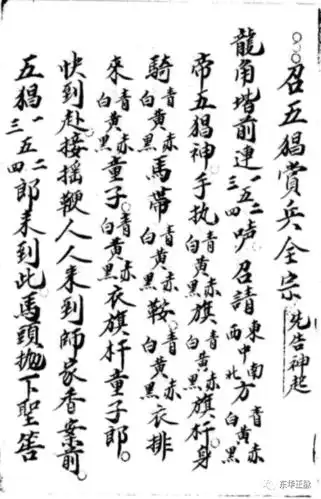 ○○○召五猖賞兵全宗 先告神起
龍角堦前連一二三四五召請東南中西北方青赤黄白黑
帝五猖神手执青赤黄白黑旗青赤黄白黑旗杆身
騎青赤黄白黑馬帶青赤黄白黑鞍青赤黄白黑衣排
來青赤黄白黑童子青赤黄白黑衣旗杆童子郎
快到赴接摇鞭人人来到師家香案前
五猖一二三四五郎来到此馬頭抛下聖筶
东华正脉